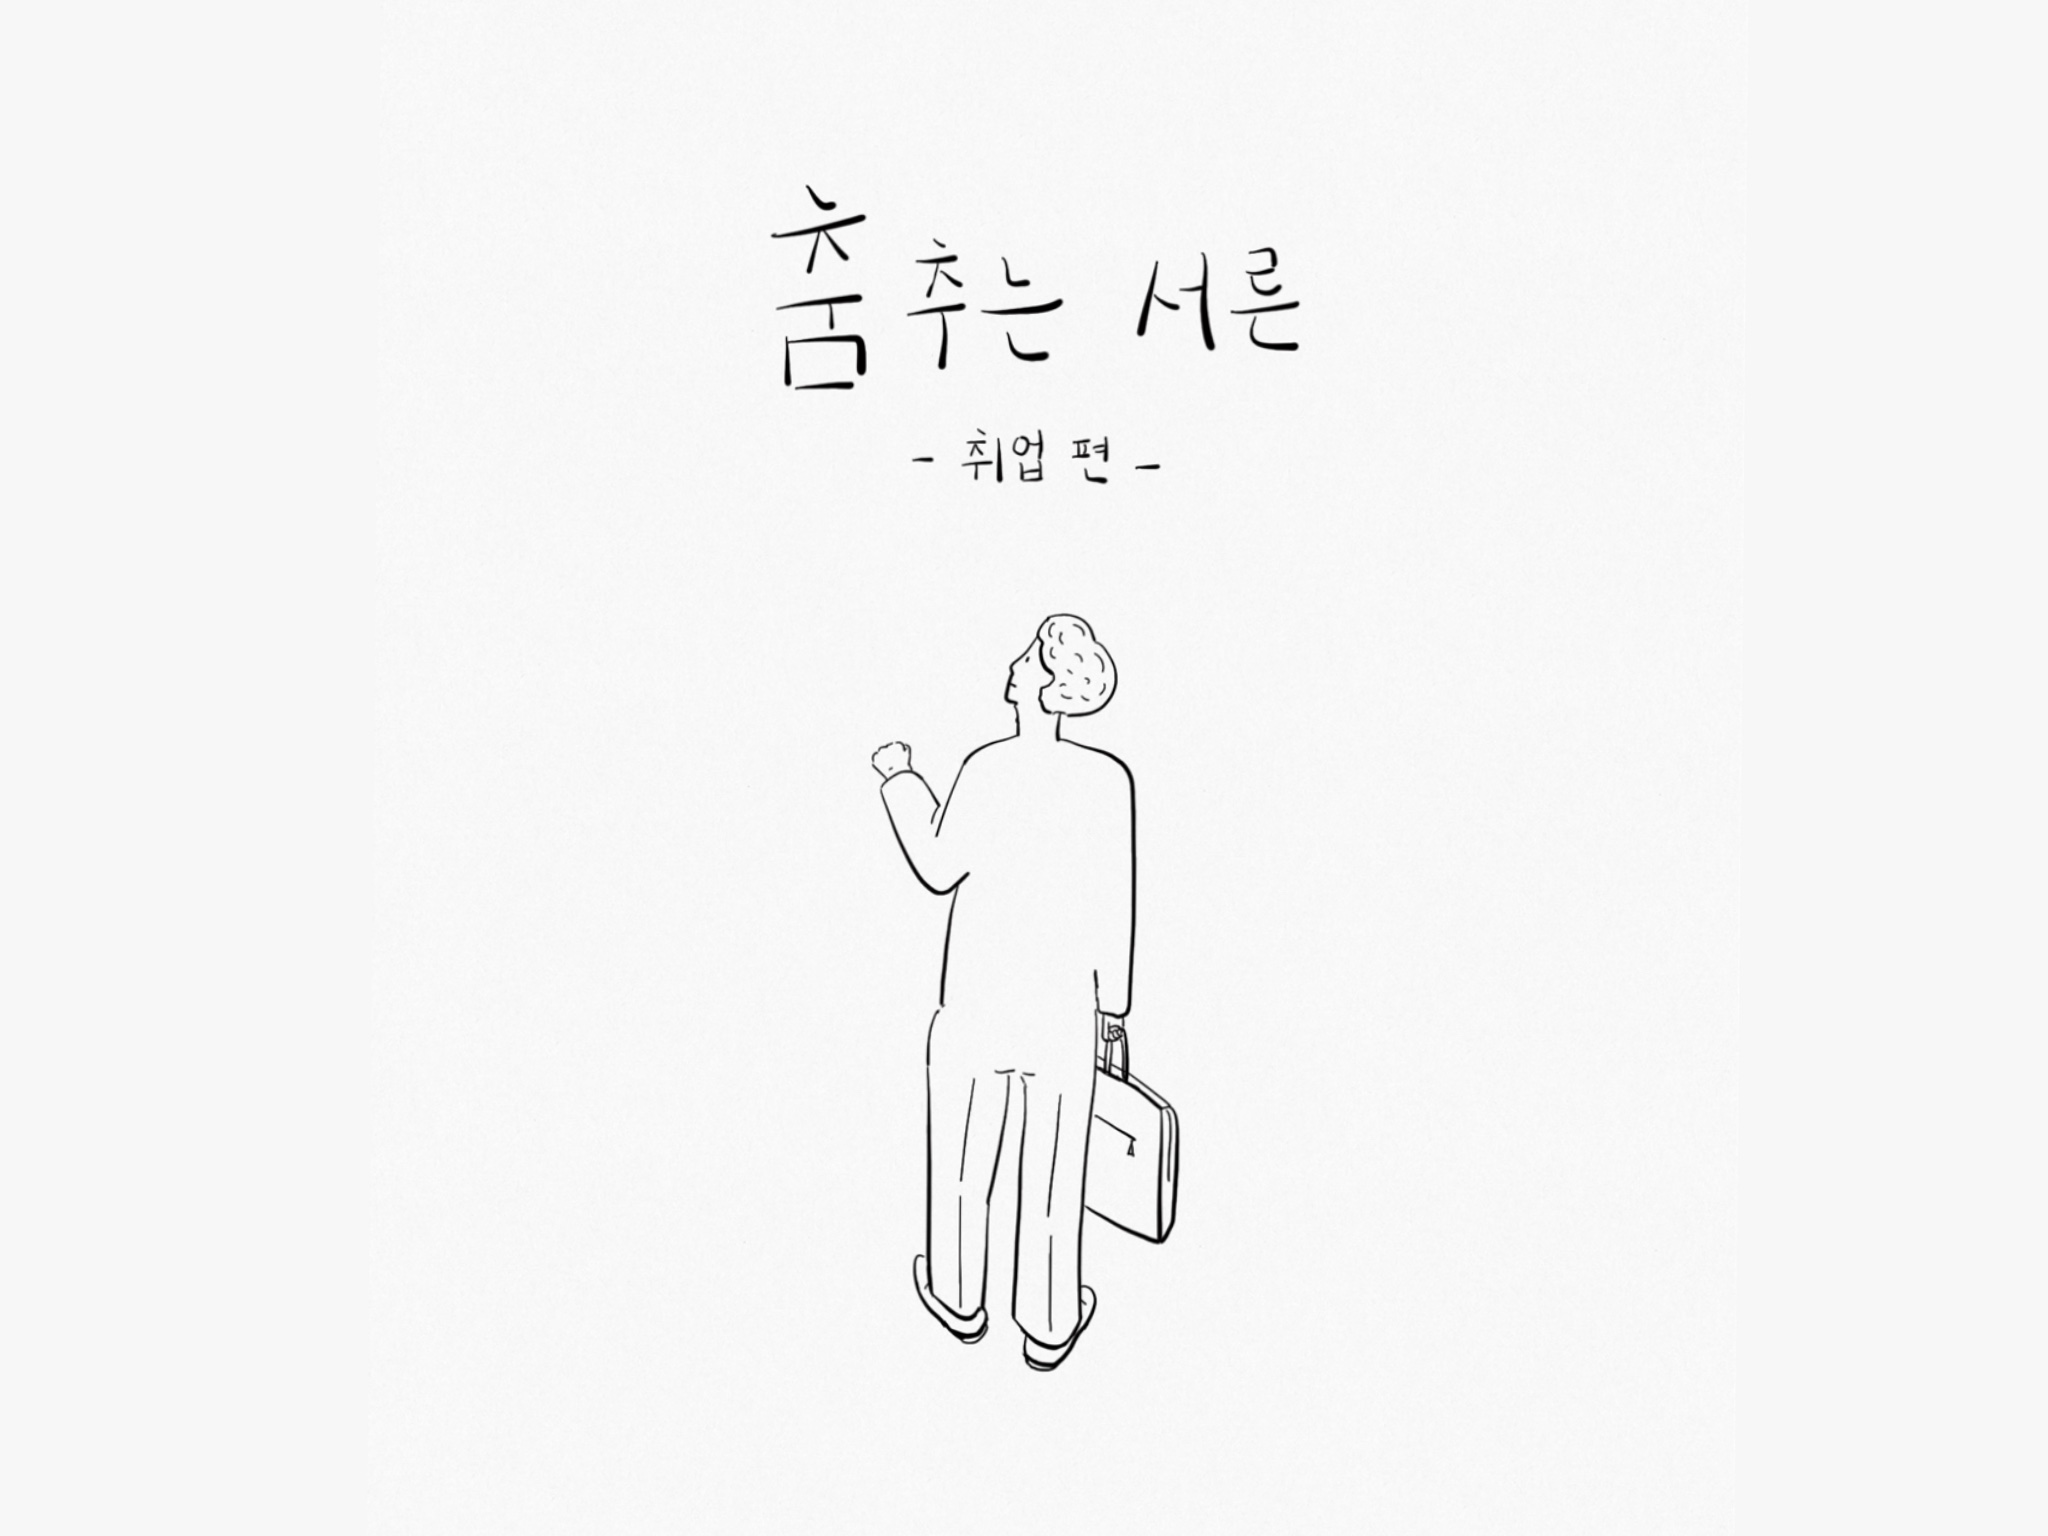 춤추는 서른
- 취업 편 -